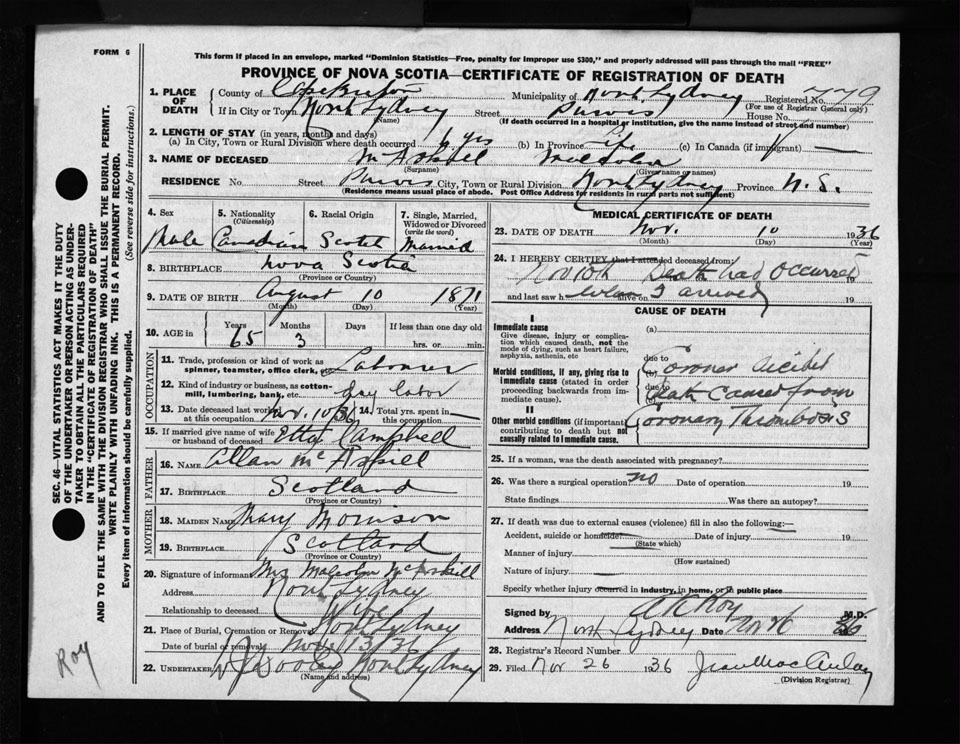 FORM 6
This form if placed in an envelope, marked "Dominion Statistics—Free, penalty for improper use $300," and properly addressed will pass through the mail "FREE"
PROVINCE OF NOVA SCOTIA—CERTIFICATE OF REGISTRATION OF DEATH
1. PLACE OF DEATH County of Cape Breton Municipality of North Sydney Registered No. 779
(For use of Registrar General only)
If in City or Town North Sydney Street Purves House No.
(Name) (If death occurred in a hospital or institution, give the name instead of street and number)
2. LENGTH OF STAY (in years, months and days)
(a) In City, Town or Rural Division where death occurred 6 yrs (b) In Province Life (c) In Canada (if immigrant) —
3. NAME OF DECEASED McAskill Malcolm
(Surname) (Given name or names)
RESIDENCE No. Street Purves City, Town or Rural Division North Sydney Province N.S.
(Residence means usual place of abode. Post Office Address for residents in rural parts not sufficient)
4. Sex Male
5. Nationality (Citizenship) Canadian
6. Racial Origin Scotch
7. Single, Married, Widowed or Divorced (write the word) Married
8. BIRTHPLACE Nova Scotia
(Province or Country)
9. DATE OF BIRTH August 10 1871
(Month) (Day) (Year)
10. AGE in Years 65 Months 3 Days If less than one day old
hrs. or min.
OCCUPATION
11. Trade, profession or kind of work as spinner, teamster, office clerk, etc. Labourer
12. Kind of industry or business, as cotton-mill, lumbering, bank, etc. labor
13. Date deceased last worked at this occupation Nov. 10/36 14. Total yrs. spent in this occupation —
15. If married give name of wife or husband of deceased Etta Campbell
FATHER
16. NAME Allan McAskill
17. BIRTHPLACE Scotland
(Province or Country)
MOTHER
18. MAIDEN NAME Mary Morrison
19. BIRTHPLACE Scotland
(Province or Country)
20. Signature of informant Mrs Malcolm McAskill
Address North Sydney
Relationship to deceased Wife
21. Place of Burial, Cremation or Removal North Sydney
Date of burial or removal Nov 13/36
22. UNDERTAKER Dooley North Sydney
(Name and address)
MEDICAL CERTIFICATE OF DEATH
23. DATE OF DEATH Nov. 10 1936
(Month) (Day) (Year)
24. I HEREBY CERTIFY that I attended deceased from
Nov 10th Death had occurred 19
and last saw h alive on when I arrived 19
CAUSE OF DEATH
I
Immediate cause
Give disease, injury or complication which caused death, not the mode of dying, such as heart failure, asphyxia, asthenia, etc
(a)
due to
Morbid conditions, if any, giving rise to immediate cause (stated in order proceeding backwards from immediate cause).
(b) Coroner decided
due to
death caused from
II
Other morbid conditions (if important) contributing to death but not causally related to immediate cause.
Coronary Thrombosis
25. If a woman, was the death associated with pregnancy?
26. Was there a surgical operation? no Date of operation 19
State findings Was there an autopsy?
27. If death was due to external causes (violence) fill in also the following:—
Accident, suicide or homicide Date of injury 19
(State which)
Manner of injury
(How sustained)
Nature of injury —
Specify whether injury occurred in industry, in home, or in public place
Signed by A K Roy M.D.
Address North Sydney Date Nov 26 36
28. Registrar's Record Number
29. Filed Nov 26 1936 Jean MacAulay
(Division Registrar)
SEC. 46—VITAL STATISTICS ACT MAKES IT THE DUTY
OF THE UNDERTAKER OR PERSON ACTING AS UNDER-
TAKER TO OBTAIN ALL THE PARTICULARS REQUIRED
IN THE "CERTIFICATE OF REGISTRATION OF DEATH"
AND TO FILE THE SAME WITH THE DIVISION REGISTRAR WHO SHALL ISSUE THE BURIAL PERMIT.
WRITE PLAINLY WITH UNFADING INK. THIS IS A PERMANENT RECORD.
Every item of information should be carefully supplied. (See reverse side for instructions.)
Roy